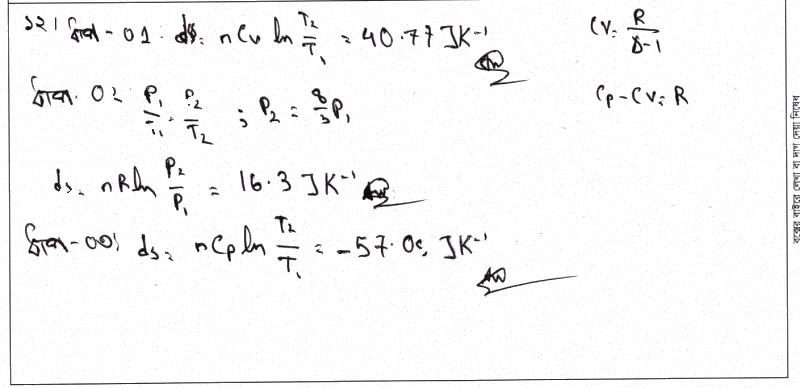 ১২। ধাপ-০১: ds = nCv ln T₂/T₁ = 40.77 JK⁻¹ Ans
Cv = R/(γ-1)
ধাপ-০২ P₁/T₁ = P₂/T₂ ; P₂ = 8/3 P₁
Cp - Cv = R
ds = nR ln P₂/P₁ = 16.3 JK⁻¹ Ans
ধাপ-০৩; ds = nCp ln T₂/T₁ = -57.0 JK⁻¹
Ans
বক্সের বাইরে লেখা বা দাগ দেয়া নিষেধ